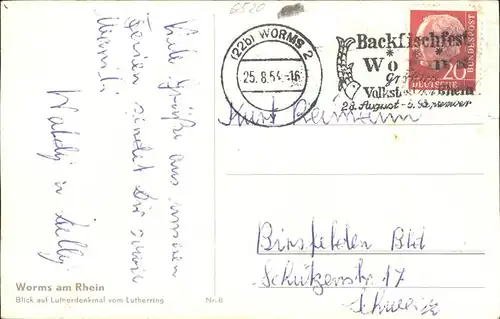 6520
(22b) WORMS 2
25.8.54.-16
Backfischfest
Worms
Volksfest
28. August - 5. September
20
DEUTSCHE BUNDESPOST
Viele Grüße aus unseren
Ferien sendet Dir sowie
Waldy u Lilly
Kurt Reimann
Birsfelden Bld
Schützenstr 17
Schweiz
Worms am Rhein
Blick auf Lutherdenkmal vom Lutherring
Nr. 6